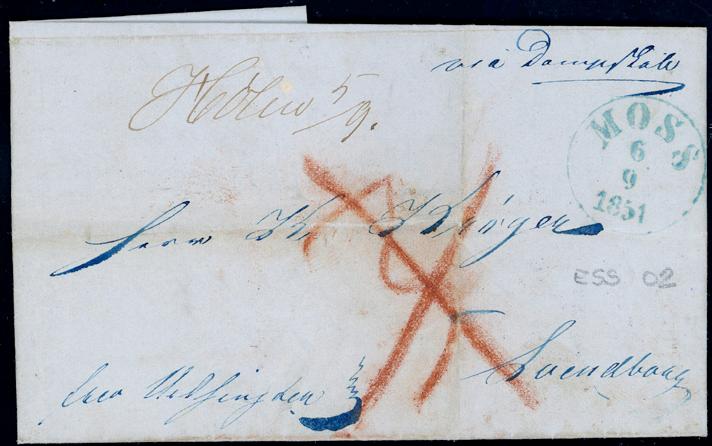 via Dampskib
Hölen 5/9.
MOSS
6
9
1851
Herr H. Krøyer
ESS 02
Svendborg
frco Helsingør